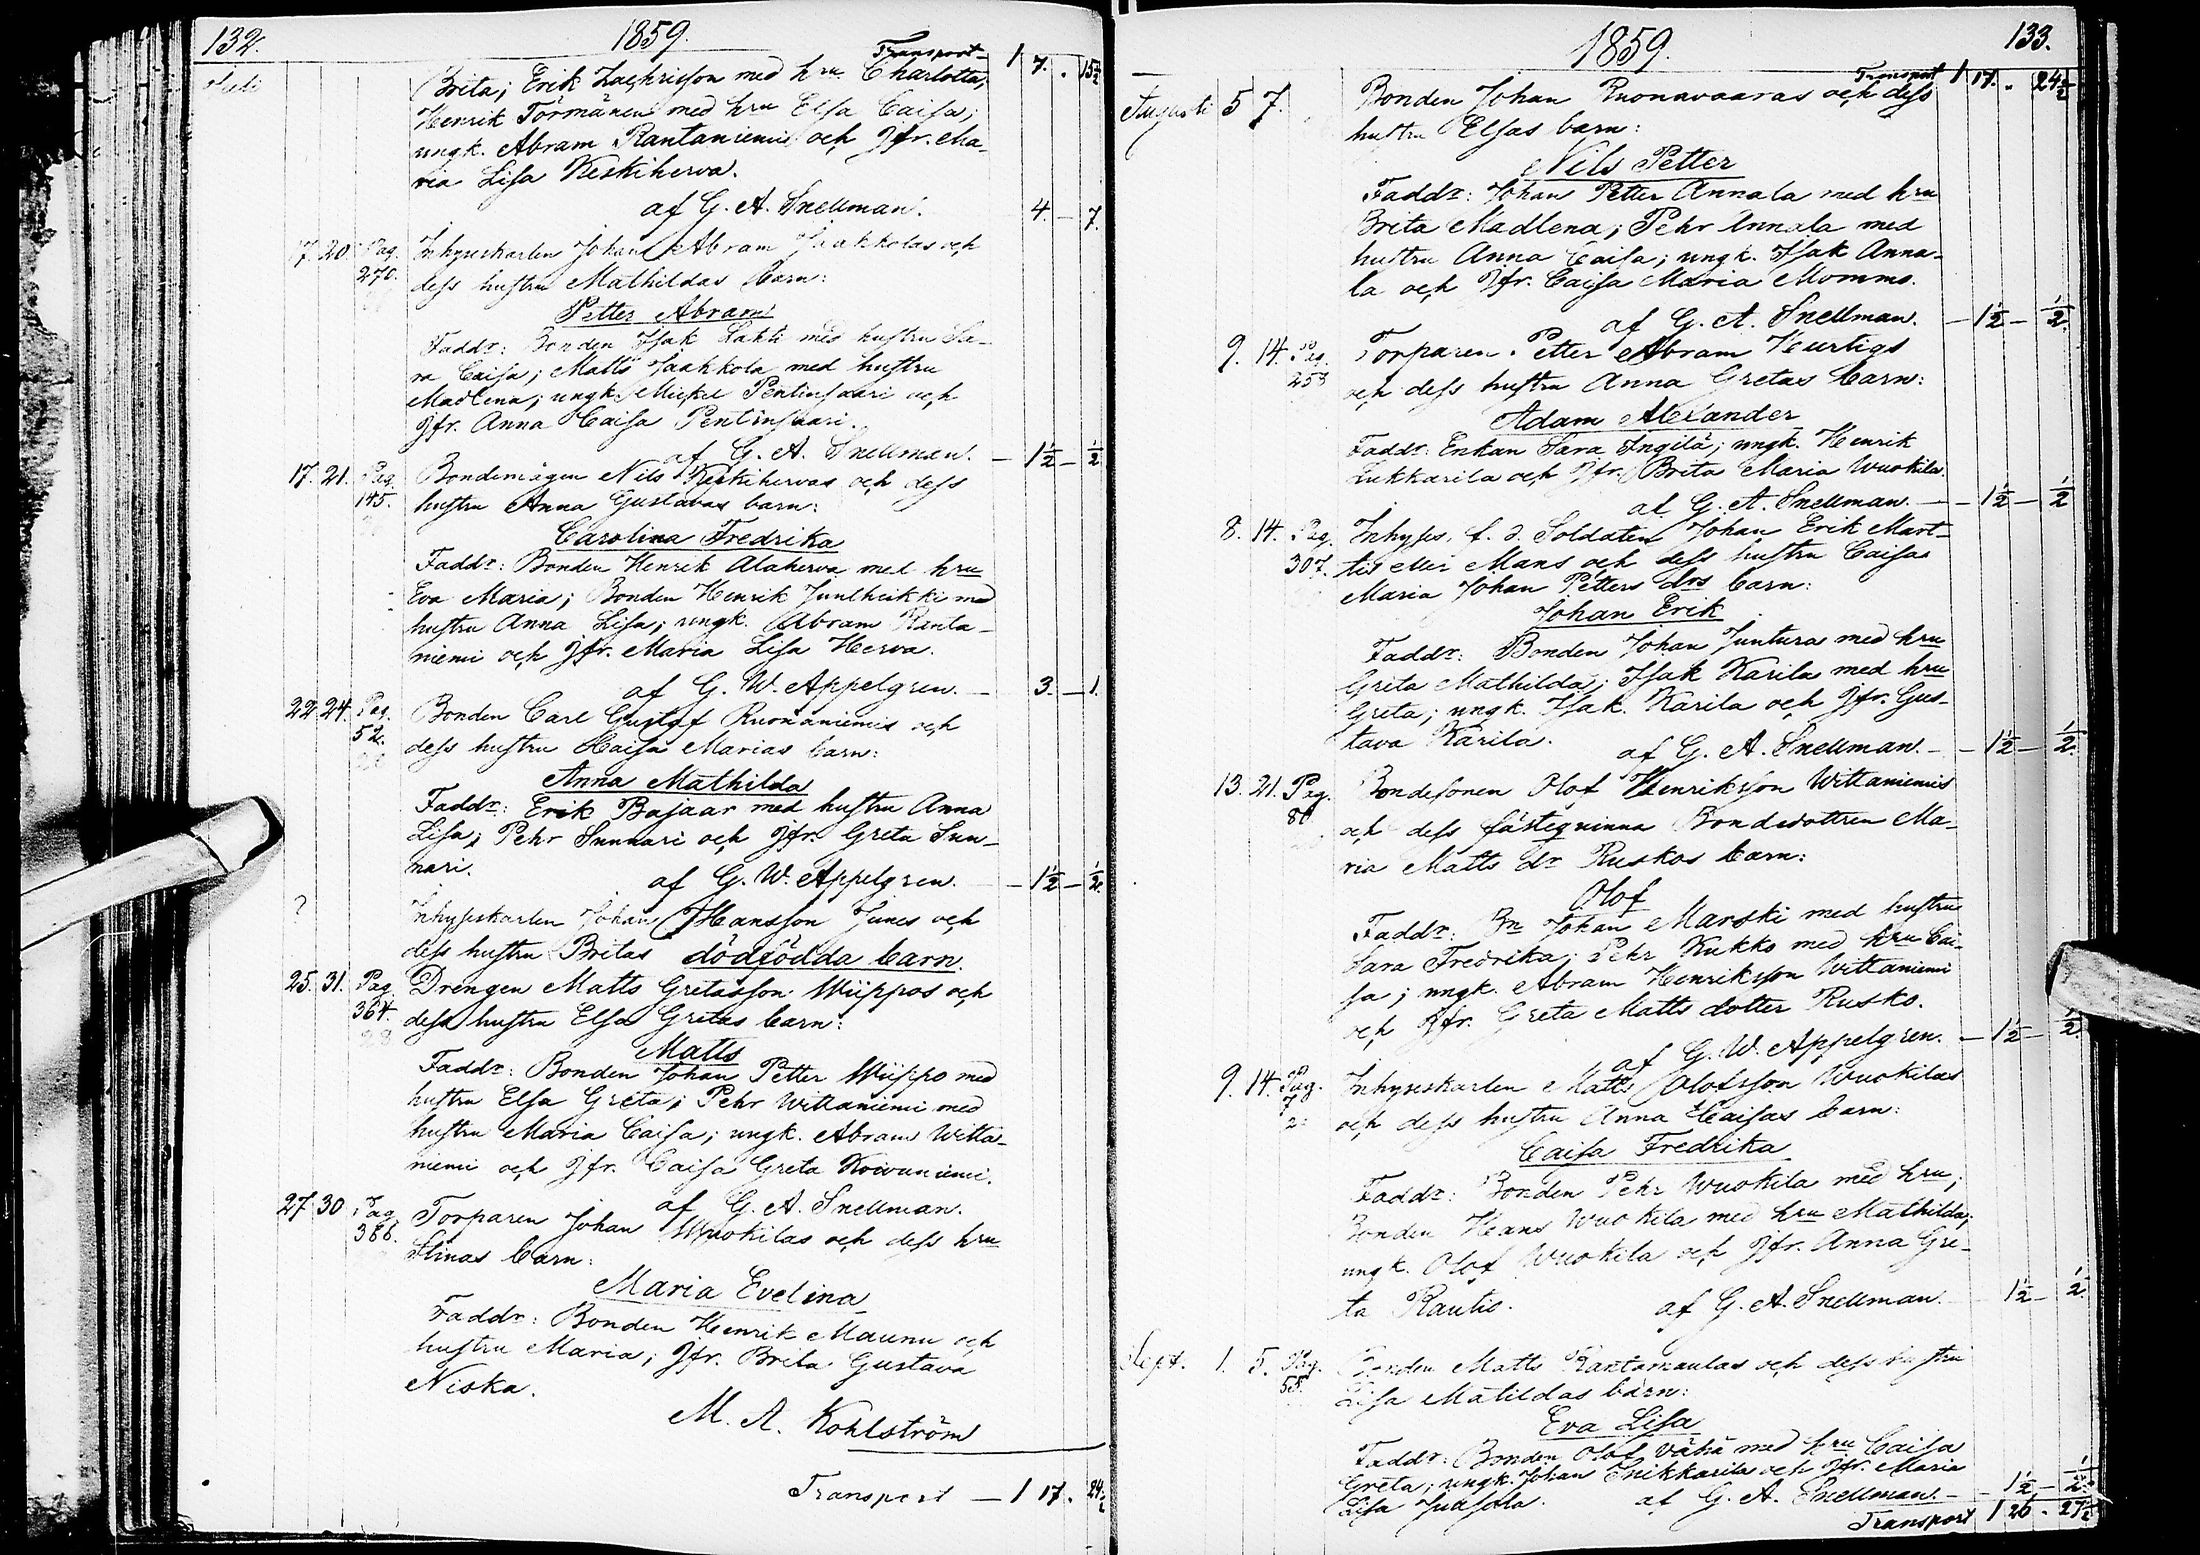 132.
1859.
Transport 1 7. . 15½
Juli
Brita; Erik Zachrisson med hru Charlotta;
Henrik Törmänen med hru Elsa Caisa;
ungk. Abram Rantaniemi och Jfr. Ma-
ria Lisa Keskiherva.
af G. A. Snellman. 4. – 7.
17. 20. Pag. 270. Inhyseskarlen Johan Abram Jaakkolas och
dess hustru Mathildas barn:
Petter Abram
Faddr: Bonden Isak Lahti med hustru Sa-
ra Caisa; Matts Jaakkola med hustru
Madlena; ungk. Mickel Pentinsaari och
Jfr. Anna Caisa Pentinsaari.
af G. A. Snellman. – 1½ – ½
17. 21. Pag. 145. Bondemågen Nils Keskihervas och dess
hustru Anna Gustavas barn:
Carolina Fredrika
Faddr: Bonden Henrik Alaherva med hru
Eva Maria; Bonden Henrik Juntheikki med
hustru Anna Lisa; ungk. Abram Ranta-
niemi och Jfr. Maria Lisa Herva.
af G. W. Appelgren. – 3. – 1.
22. 24. Pag. 52. Bonden Carl Gustaf Ruonaniemis och
dess hustru Caisa Marias barn:
Anna Mathilda
Faddr: Erik Bajaar med hustru Anna
Lisa; Pehr Sunnari och Jfr. Greta Sun-
nari.
af G. W. Appelgren. – 1½ – ½.
? Inhyseskarlen Johan Hansson Junes och
dess hustru Britas dödfödda barn.
25. 31. Pag. 364. Drengen Matts Gretasson Wiippos och
dess hustru Elsa Gretas barn:
Matts
Faddr: Bonden Johan Petter Wiippo med
hustru Elsa Greta; Pehr Wittaniemi med
hustru Maria Caisa; ungk. Abram Witta-
niemi och Jfr. Caisa Greta Koivuniemi.
af G. A. Snellman.
27. 30 Pag. 386. Torparen Johan Wuokilas och dess hru
Stinas barn:
Maria Evelina
Faddr: Bonden Henrik Maunu och
hustru Maria; Jfr. Brita Gustava
Niska.
M. A. Kohlström
Transport – 1 17. 24½
1859.
133.
Transport 1 17. . 24½
Augusti 5 7. Bonden Johan Ruonavaaras och dess
hustru Elsas barn:
Nils Petter
Faddr: Johan Petter Annala med hru
Brita Madlena; Pehr Annala med
hustru Anna Caisa; ungk. Isak Anna-
la och Jfr. Caisa Maria Mommo.
af G. A. Snellman. – 1½ – ½.
9. 14. Pag. 253 Torparen Petter Abram Hurtigs
och dess hustru Anna Gretas barn:
Adam Alexander
Faddr: Enkan Sara Ingilä; ungk. Henrik
Lukkarila och Jfr. Brita Maria Wuokila.
af G. A. Snellman. – 1½ – ½
8. 14. Pag. 307. Inhyses, f. d. Soldaten Johan Erik Mart-
tis eller Mans och dess hustru Caisa
Maria Johan Petters drs barn:
Johan Erik
Faddr: Bonden Johan Juntura med hru
Greta Mathilda; Isak Karila med hru
Greta; ungk. Isak Karila och Jfr. Gus-
tava Karila.
af G. A. Snellman. – 1½ – ½.
13. 21. Pag. 80 Bondesonen Olof Henriksson Wittaniemis
och dess fästeqvinna Bondedottren Ma-
ria Matts dr Ruskos barn:
Olof
Faddr: Bn Johan Marski med hustru
Sara Fredrika; Pehr Kukko med hru Cai-
sa; ungk. Abram Henriksson Wittaniemi
och Jfr. Greta Matts dotter Rusko.
af G. W. Appelgren. – 1½ – ½.
9. 14. Pag. 7 Inhyseskarlen Matts Olofsson Wuokilas
och dess hustru Anna Caisas barn:
Caisa Fredrika
Faddr: Bonden Pehr Wuokila med hru;
Bonden Hans Wuokila med hru Mathilda;
ungk. Olof Wuokila och Jfr. Anna Gre-
ta Rautio.
af G. A. Snellman. 1½ – ½.
Sept. 1. 5. Pag. 55. Bonden Matts Rantamaulas och dess hustru
Lisa Matildas barn:
Eva Lisa
Faddr: Bonden Olof Vähä med hru Caisa
Greta; ungk. Johan Inikkarila och Jfr. Maria
Lisa
af G. A. Snellman. – 1½ – ½.
Transport 1 26 . 27½